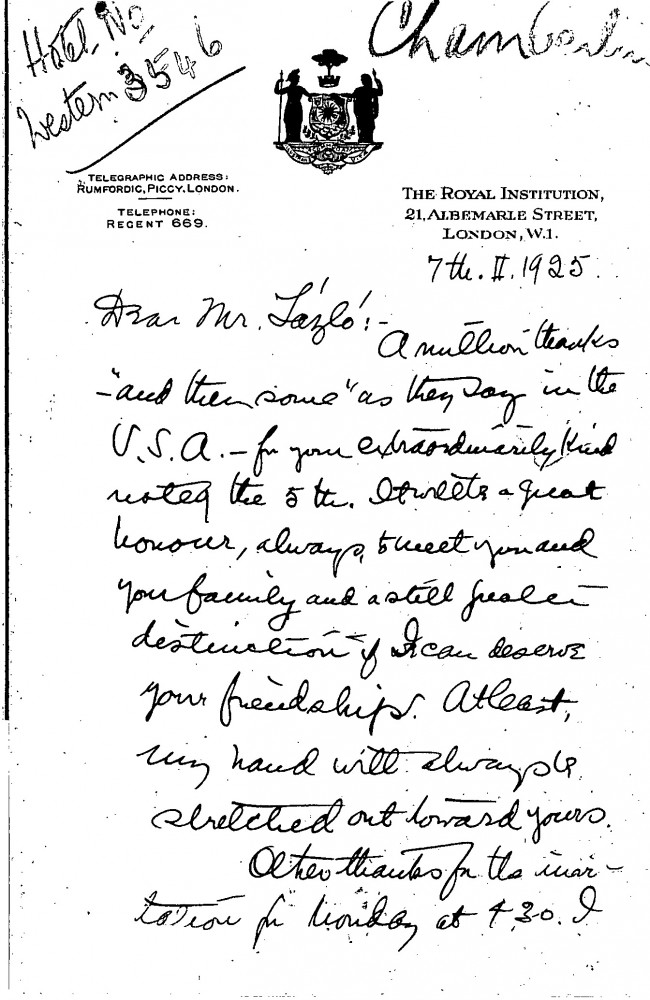 Hotel No
Western 3546
Chamberlin
TELEGRAPHIC ADDRESS:
RUMFORDIC, PICCY, LONDON.
TELEPHONE:
REGENT 669.
THE ROYAL INSTITUTION,
21, ALBEMARLE STREET,
LONDON, W.1.
7th. II. 1925.
Dear Mr. László:-
A million thanks
- "and then some" as they say in the
U.S.A. - for your extraordinarily kind
note of the 5th. It will be a great
honour, always, to meet you and
your family and a still greater
distinction if I can deserve
your friendships. At least,
my hand will always be
stretched out toward yours.
Other thanks for the invi-
tation for Monday at 4.30. I